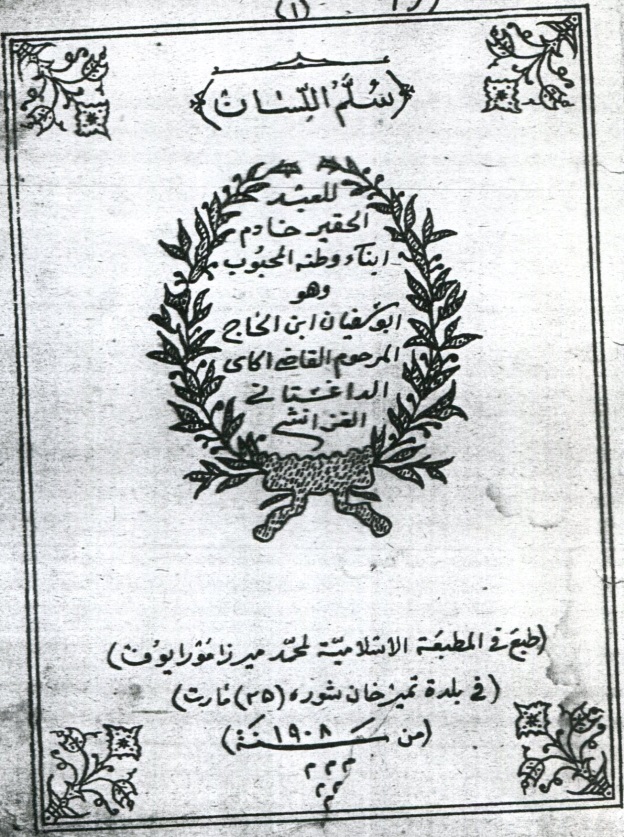 (١)
(سُلَّمُ اللِّسَان)
للعبد
الحقير خادم
ابناء وطنه المحبُوب
وهو
ابو سفيان ابن الحاج
المرحوم القاضے اكاى
الداغستانے
القزانشے
(طبعَ فی المطبعَة الاسلاميّة لمحمّد ميرزا مَوْرايوْف)
(فی بلدة تميرخان شوره (٢٥) مارت)
(من سَنَة ١٩٠٨)